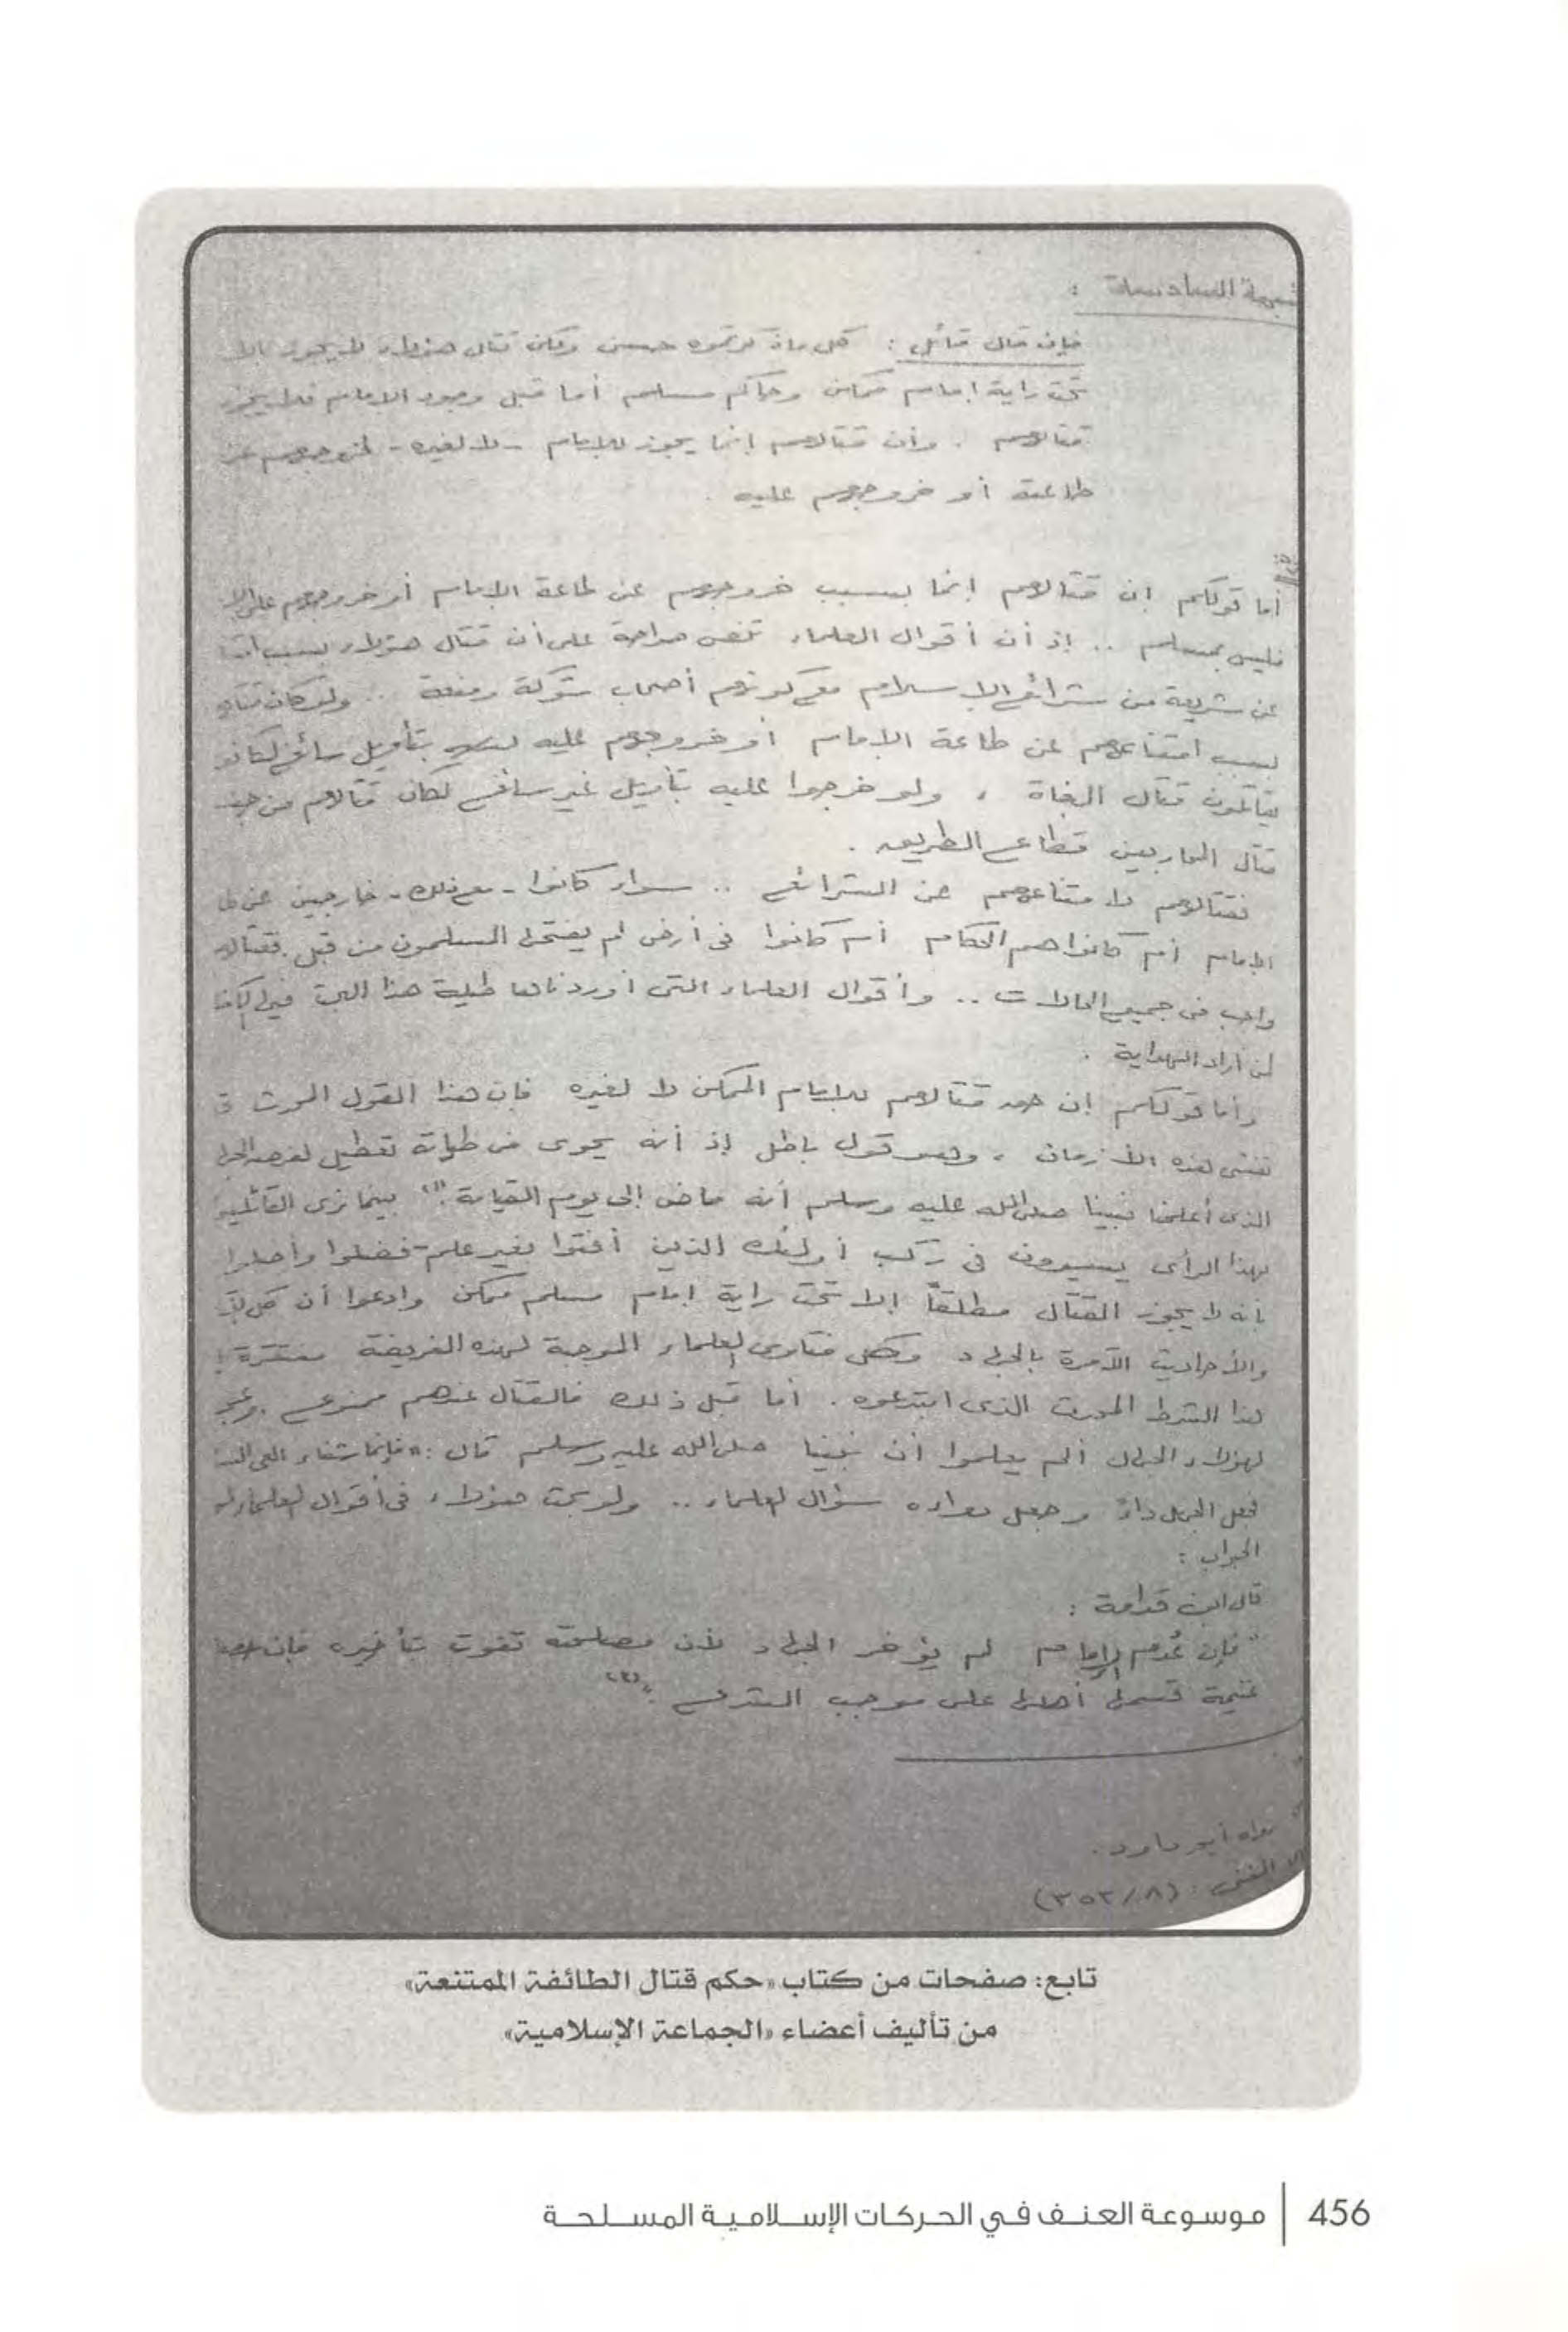 شبهة السادسة :
فإن قال قائل : كل ماذكرتموه حسن ولكن قتال هؤلاء لا يجوز إلا
تحت راية إمام ممكن وحاكم مسلم أما قبل وجود الإمام فلا يجوز
قتالهم . وأن قتالهم إنما يجوز للإمام - لا لغيره - لخروجهم عن
طاعته أو خروجهم عليه .
قلنا
أما قولكم إن قتالهم إنما بسبب خروجهم عن طاعة الإمام أو خروجهم على
فليس بمسلم .. إذ أن أقوال العلماء تنص صراحة على أن قتال هؤلاء بسبب
عن شريعة من شرائع الإسلام مع كونهم أصحاب شوكة ومنعة .. ولو كان
بسبب امتناعهم عن طاعة الإمام أو خروجهم عليه بتأويل سائغ لكانوا
يقاتلون قتال البغاة ، ولو خرجوا عليه بتأويل غير سائغ لكان قتالهم من
قتال المحاربين قطاع الطريق .
فقتالهم لامتناعهم عن الشرائع .. سواء كانوا - مع ذلك - خارجين عن
الإمام أم كانوا هم الحكام أم كانوا فى أرض لم يفتحها المسلمون من قبل . فقتالهم
واجب فى جميع الحالات .. وأقوال العلماء التى أوردناها طيلة هذا البحث فيها
لمن أراد الهداية .
وأما قولكم إن قتالهم للإمام الممكن لا لغيره فإن هذا القول المحدث
تفشى هذه الأزمان ، وهو قول باطل إذ أنه يحوى فى طياته تعطيل لفرض
الذى أعلمنا نبينا صلى الله عليه وسلم أنه ماض إلى يوم القيامة .(١) بينما نرى القائلين
بهذا الرأى يسيرون فى ركب أولئك الذين أفتوا بغير علم فضلوا وأضلوا
بأنه لا يجوز القتال مطلقاً إلا تحت راية إمام مسلم ممكن وادعوا أن كل
والأحاديث الآمرة بالجهاد وكل فتاوى العلماء الموجبة لهذه الفريضة مفتقرة
لهذا الشرط المحدث الذى ابتدعوه . أما قبل ذلك فالقتال عندهم ممنوع .
لهؤلاء الجهال ألم يعلموا أن نبينا صلى الله عليه وسلم قال : « فإنما شفاء العى السؤال
فجعل الجهل داءً وجعل دواءه سؤال العلماء .. ولو بحث هؤلاء فى أقوال العلماء
الجواب :
قال ابن قدامة :
" فإن عُدم الإمام لم يؤخر الجهاد لأن مصلحته تفوت بتأخيره فإن
غنيمة قسمها أهلها على موجب الشرع . "(٢)
رواه أبو داود .
(٢) المغنى : (٨ / ٣٥٣)
تابع: صفحات من كتاب «حكم قتال الطائفة الممتنعة»
من تأليف أعضاء «الجماعة الإسلامية»
456 | موسوعة العنف في الحركات الإسلامية المسلحة